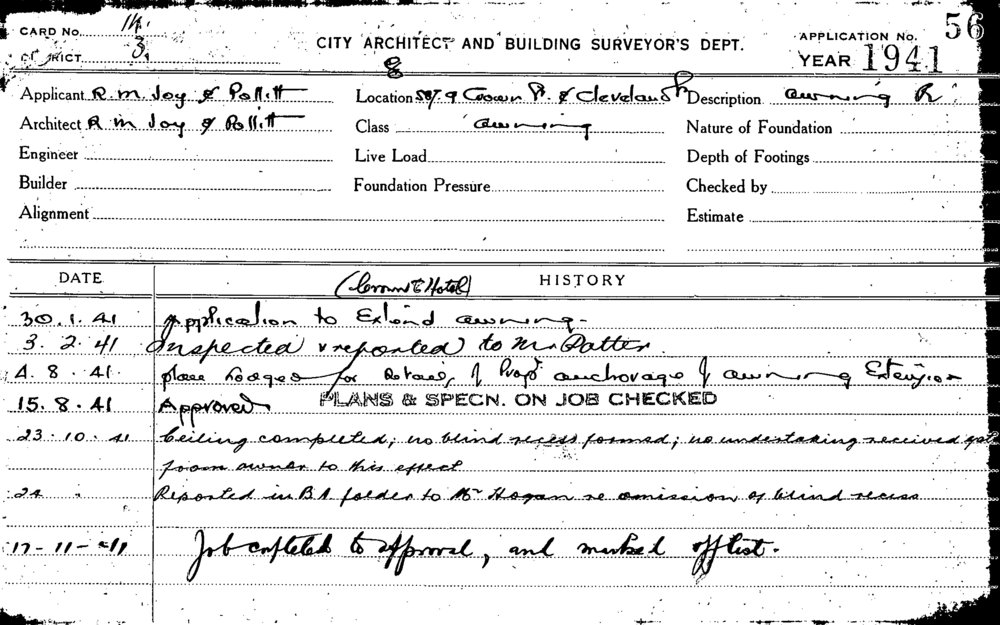 CARD No. 14
DISTRICT 3.
CITY ARCHITECT AND BUILDING SURVEYOR'S DEPT.
APPLICATION No. 56
YEAR 1941
Applicant R. M. Joy & Pollitt
Location & Cleveland Description awning R
Architect R M Joy & Pollitt
Class awning
Nature of Foundation
Engineer
Live Load
Depth of Footings
Builder
Foundation Pressure
Checked by
Alignment
Estimate
DATE
HISTORY
(Crown Hotel)
30.1.41 Application to Extend awning.
3.2.41 Inspected & reported to Mr Patter
4.8.41. plan lodged for details of Propd anchorage of awning Extension
15.8.41 Approved PLANS & SPECN. ON JOB CHECKED
23.10.41 Ceiling completed; no blind recess formed; no undertaking received yet
from owner to this effect
24 " Reported in B.A folder to Mr Hogan re omission of blind recess
17-11-41 Job completed to approval, and marked off list.